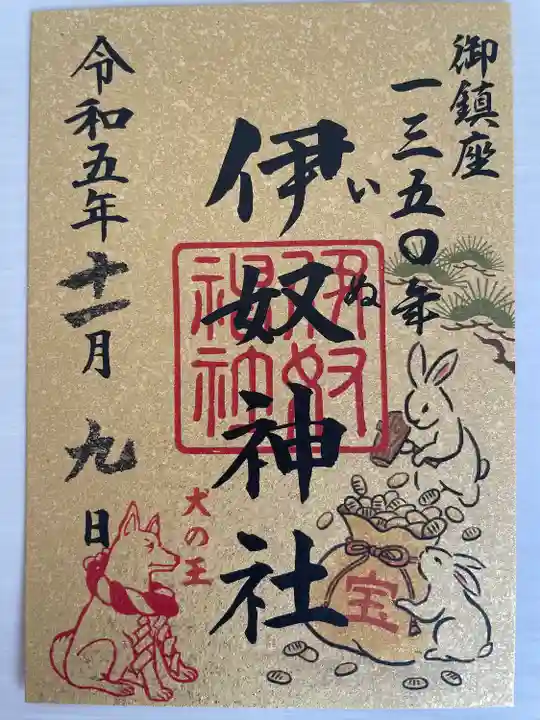 御鎮座
一三五〇年
伊奴神社
いぬ
伊奴
神社
犬の王
宝
令和五年十一月九日